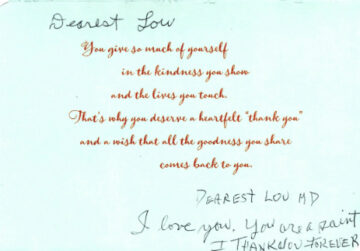 Dearest Lou
You give so much of yourself
in the kindness you show
and the lives you touch.
That's why you deserve a heartfelt "thank you"
and a wish that all the goodness you share
comes back to you.
DEAREST LOU MD
I love you. You are a saint
I THANK YOU FOREVER